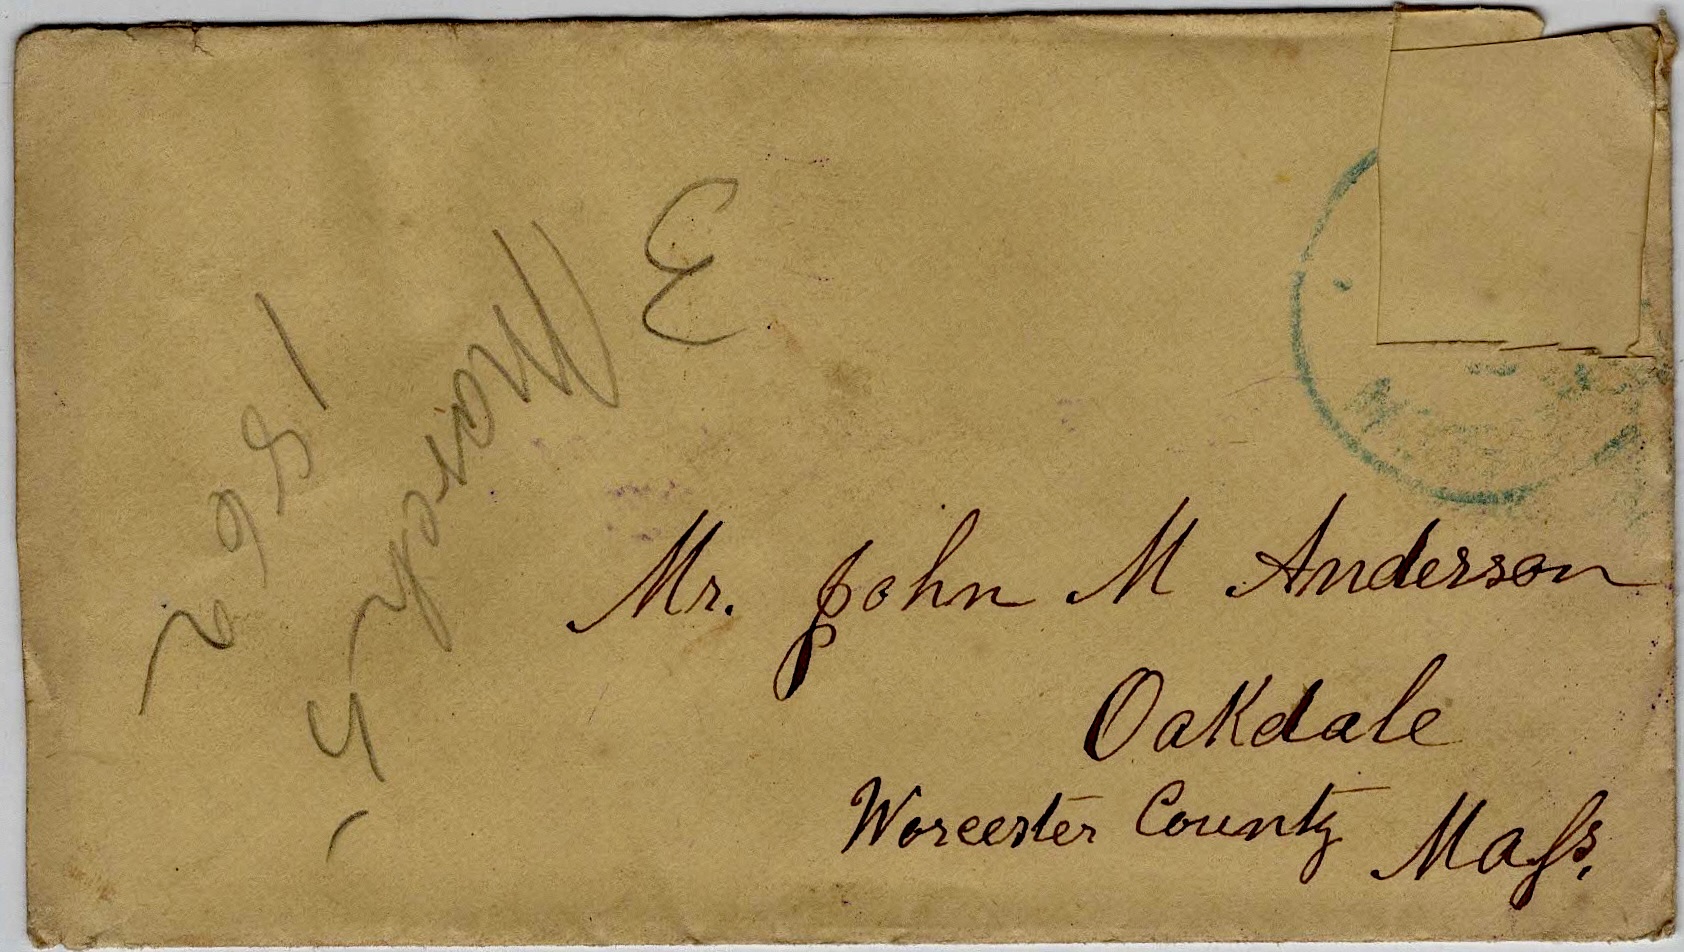 3
March 5,
1862
Mr. John M Anderson
Oakdale
Worcester County Maſs.